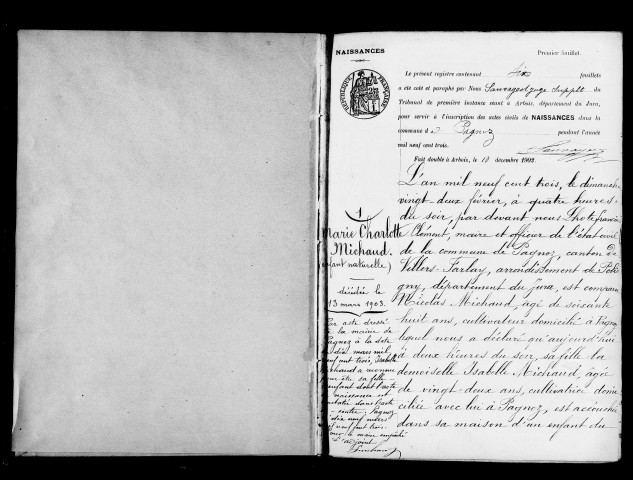 NAISSANCES
Premier feuillet.
RÉPUBLIQUE FRANÇAISE
Le présent registre contenant six feuillets
a été coté et paraphé par Nous Sauvageot, juge supplt du
Tribunal de première instance séant à Arbois, département du Jura,
pour servir à l'inscription des actes civils de NAISSANCES dans la
commune d e Pagnoz pendant l'année
mil neuf cent trois.
Fait double à Arbois, le 10 décembre 1902.
1
Marie Charlotte
Michaud.
(enfant naturelle)
décédée le
13 mars 1903.
Par acte dressé
à la mairie de
Pagnoz à la date
du dix mars mil
neuf cent trois, Isabelle
Michaud a reconnu
pour être sa fille
enfant dont l'acte
naissance est
dans l'acte
contre. Pagnoz
dix neuf mars
mil neuf cent trois.
Pour le maire empêché
L'adjoint
L'an mil neuf cent trois, le dimanche
vingt-deux février, à quatre heures
du soir, par devant nous Lhote francois
Clément, maire et officier de l'état civil
de la commune de Pagnoz, canton de
Villers-Farlay, arrondissement de Poli
gny, département du Jura, est comparu
Nicolas Michaud, âgé de soixante
huit ans, cultivateur domicilié à Pagnoz
lequel nous a déclaré qu'aujourd'hui
à deux heures du soir, sa fille la
demoiselle Isabelle Michaud, âgée
de vingt-deux ans, cultivatrice domi
ciliée avec lui à Pagnoz, est accouchée
dans sa maison d'un enfant du